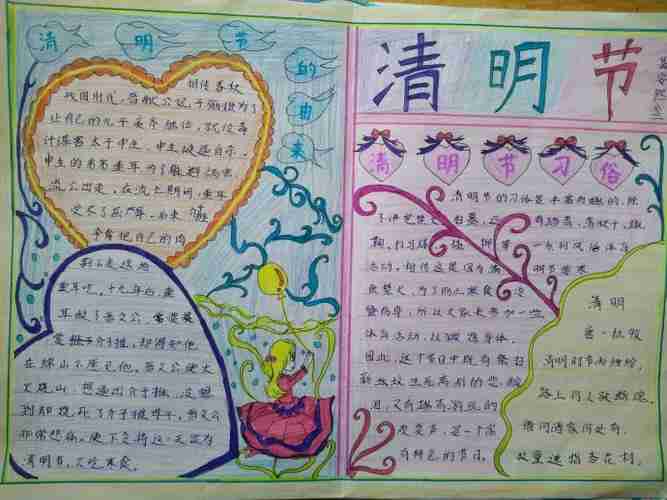 清明节的由来
相传春秋
战国时代，晋献公妃子骊姬为了
让自己的儿子奚齐继位，就设毒
计谋害太子申生，申生被逼自杀。
申生的弟弟重耳为了躲避祸害，
流亡出走。在流亡期间，重耳
受尽了屈辱。
割下来送给
重耳吃。十九年后，重
耳做了晋文公，
介子推，却得知他
在绵山不愿见他，晋文公便火
火烧山，想逼出介子推，没想
到却烧死了介子推母子，晋文公
非常悲痛，便下令将这一天定为
清明节，只吃寒食。
清明节
清明节习俗
清明节的习俗是丰富有趣的，除
了讲究禁火、扫墓，还有踏青、荡秋千、蹴
鞠、打马球、插柳等一系列风俗体育
活动。相传这是因为清明节要寒
食禁火，为了防止寒食
所以大家来参加一些
体育活动，以锻炼身体。
因此，这个节日中既有祭扫
新坟生死离别的悲酸
泪，又有踏青游玩的
欢笑声，是一个富
有特色的节日。
清明
唐-杜牧
清明时节雨纷纷，
路上行人欲断魂。
借问酒家何处有，
牧童遥指杏花村。